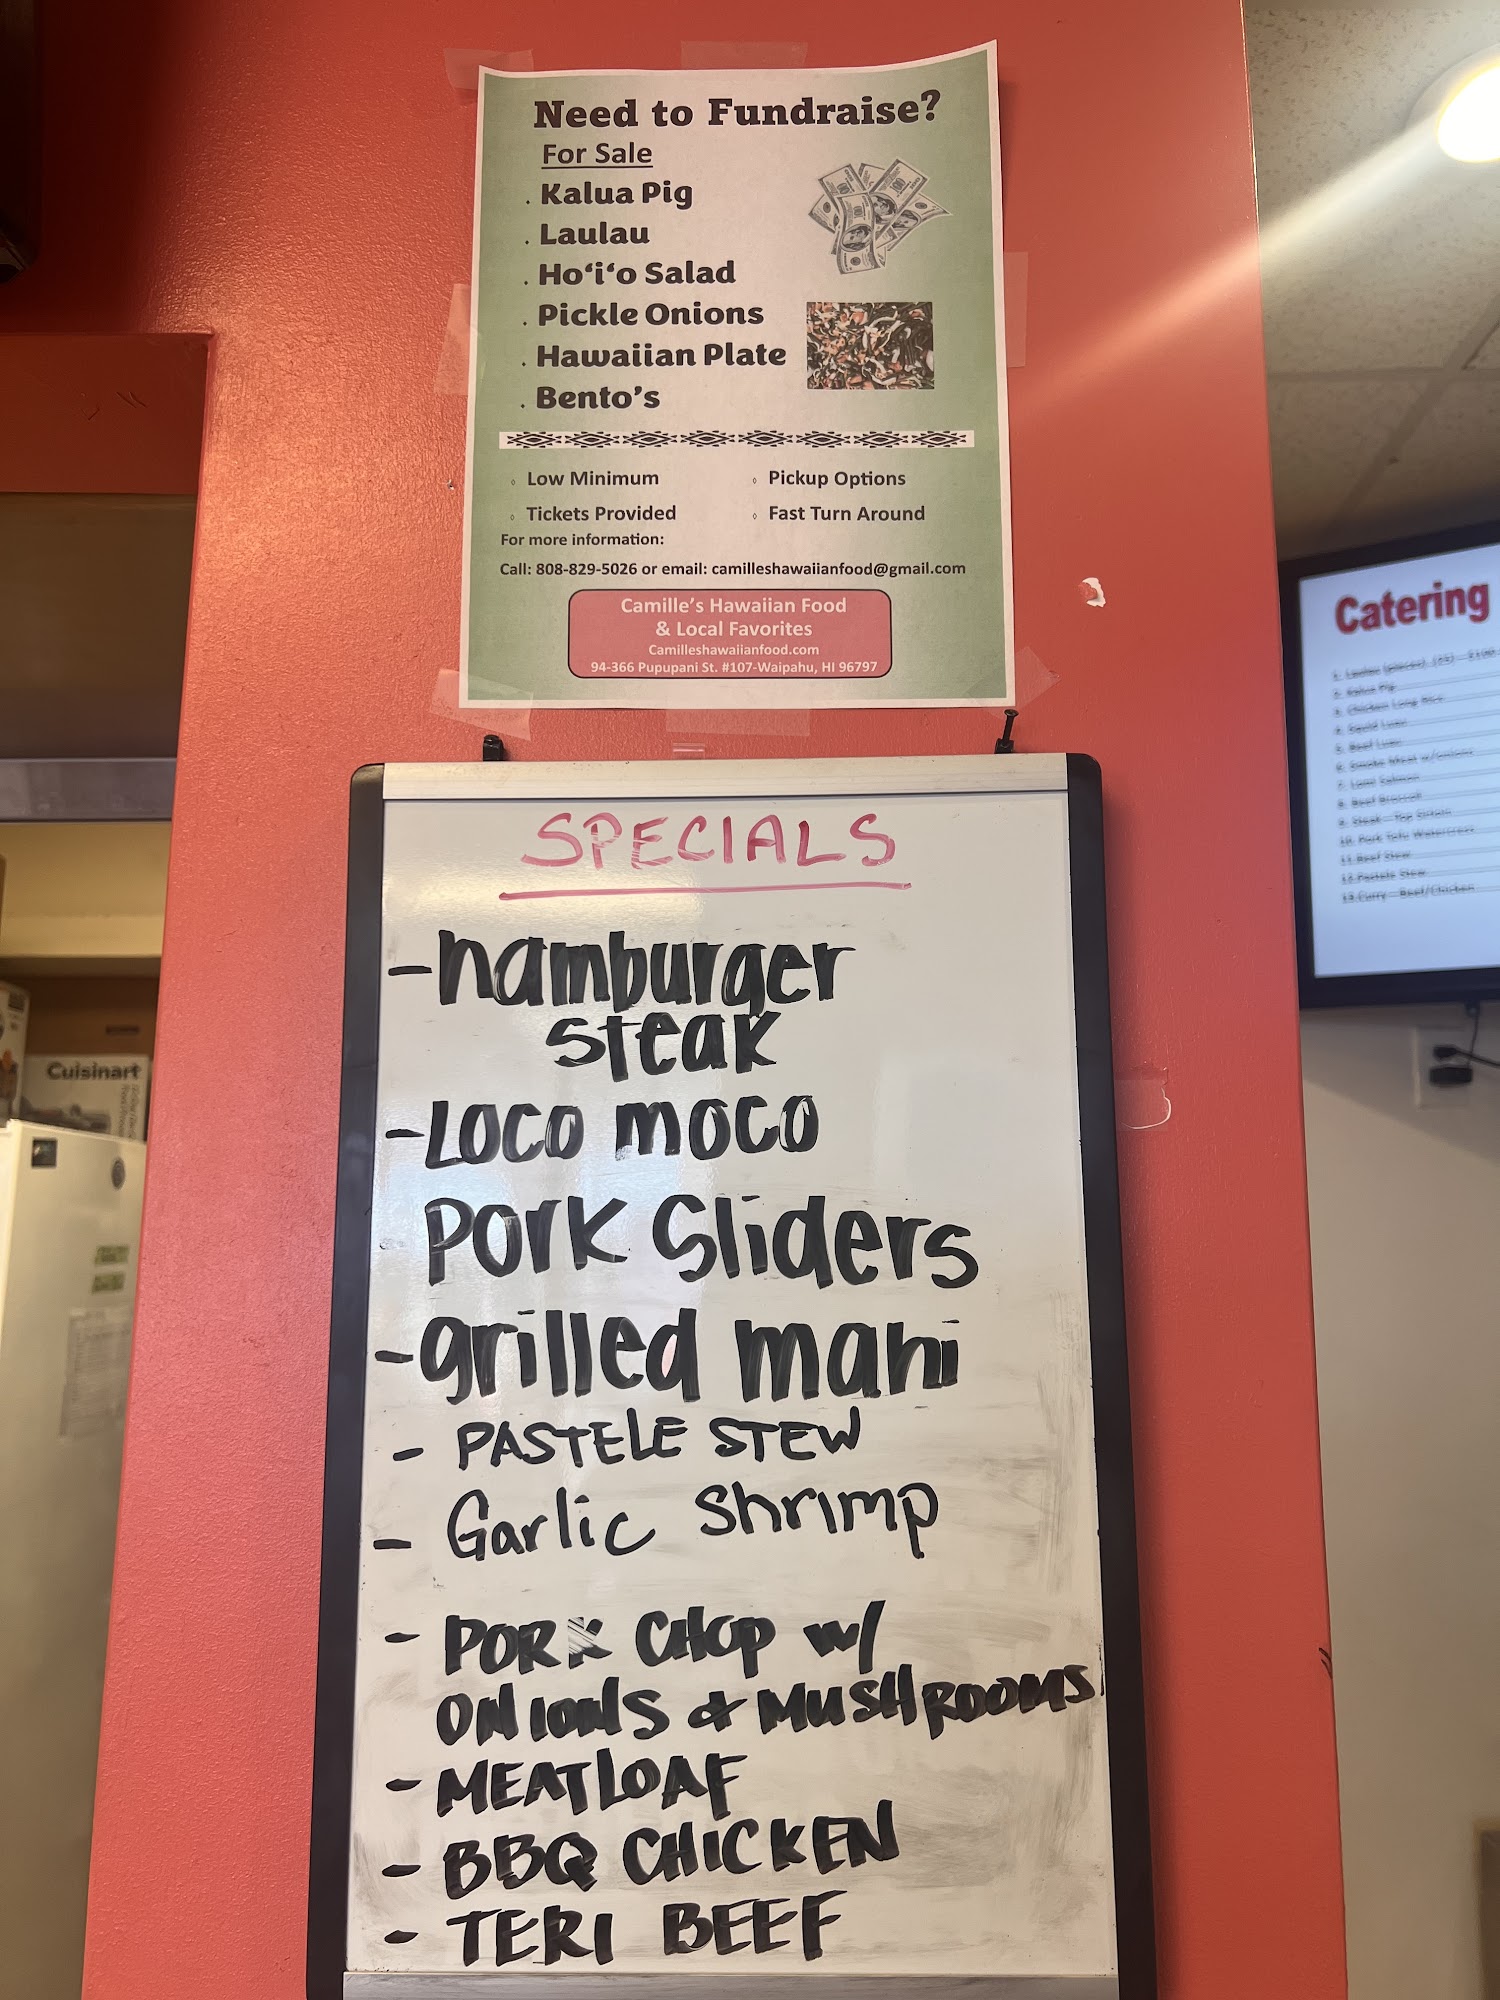 Need to Fundraise?
For Sale
. Kalua Pig
. Laulau
. Hoʻiʻo Salad
. Pickle Onions
. Hawaiian Plate
. Bento’s
◊ Low Minimum
◊ Pickup Options
◊ Tickets Provided
◊ Fast Turn Around
For more information:
Call: 808-829-5026 or email: camilleshawaiianfood@gmail.com
Camille’s Hawaiian Food
& Local Favorites
Camilleshawaiianfood.com
94-366 Pupupani St. #107-Waipahu, HI 96797
SPECIALS
- hamburger
steak
- Loco moco
Pork Sliders
- grilled mahi
- PASTELE STEW
- Garlic Shrimp
- PORK CHOP w/
ONIONS & MUSHROOMS
- MEATLOAF
- BBQ CHICKEN
- TERI BEEF
Catering
2. Kalua Pig
3. Chicken Long Rice
4. Squid Luau
5. Beef Luau
6. Smoke Meat w/onions
7. Lomi Salmon
8. Beef Broccoli
9. Steak—Top Sirloin
10. Pork Tofu Watercress
11. Beef Stew
12. Pastele Stew
13. Curry—Beef/Chicken
Cuisinart